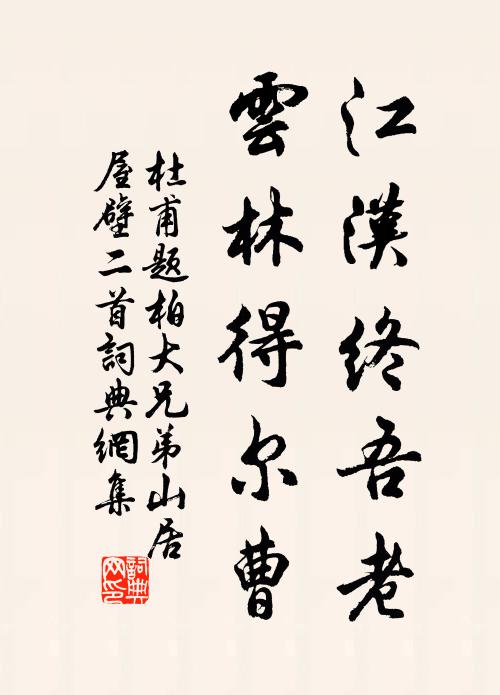 江漢終吾老
雲林得尔曹
杜甫題柏大兄弟山居
屋壁二首詞典網集
詞典
网印